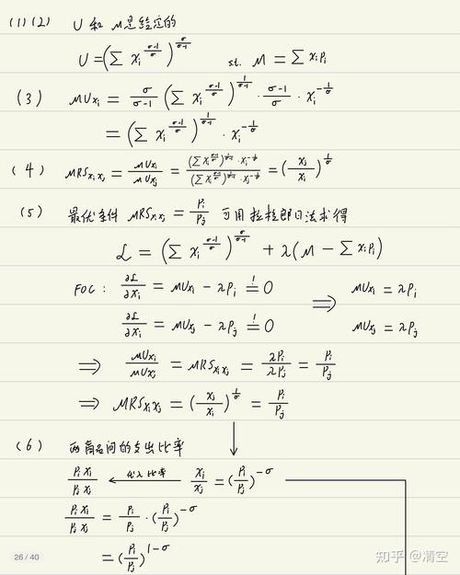 (1)(2) U 和 M 是给定的
U = (∑ xᵢ^((σ-1)/σ))^(σ/(σ-1)) s.t. M = ∑ xᵢpᵢ
(3) MUxᵢ = σ/(σ-1) (∑ xᵢ^((σ-1)/σ))^(1/(σ-1)) · (σ-1)/σ · xᵢ^(-1/σ)
= (∑ xᵢ^((σ-1)/σ))^(1/(σ-1)) · xᵢ^(-1/σ)
(4) MRSxᵢxⱼ = MUxᵢ/MUxⱼ = (∑ xᵢ^((σ-1)/σ))^(1/(σ-1)) · xᵢ^(-1/σ) / (∑ xᵢ^((σ-1)/σ))^(1/(σ-1)) · xⱼ^(-1/σ) = (xⱼ/xᵢ)^(1/σ)
(5) 最优条件 MRSxᵢxⱼ = Pᵢ/Pⱼ 可用拉格朗日法求得
ℒ = (∑ xᵢ^((σ-1)/σ))^(σ/(σ-1)) + λ(M − ∑ xᵢpᵢ)
FOC: ∂ℒ/∂xᵢ = MUxᵢ − λPᵢ =! 0 ⟹ MUxᵢ = λPᵢ
∂ℒ/∂xⱼ = MUxⱼ − λPⱼ =! 0 MUxⱼ = λPⱼ
⟹ MUxᵢ/MUxⱼ = MRSxᵢxⱼ = λPᵢ/λPⱼ = Pᵢ/Pⱼ
⟹ MRSxᵢxⱼ = (xⱼ/xᵢ)^(1/σ) = Pᵢ/Pⱼ
(6) 两商品间的支出比率
Pᵢxᵢ/Pⱼxⱼ ← 代入比率 xᵢ/xⱼ = (Pᵢ/Pⱼ)^(-σ)
Pᵢxᵢ/Pⱼxⱼ = Pᵢ/Pⱼ · (Pᵢ/Pⱼ)^(-σ)
= (Pᵢ/Pⱼ)^(1-σ)
26 / 40
知乎 @清空